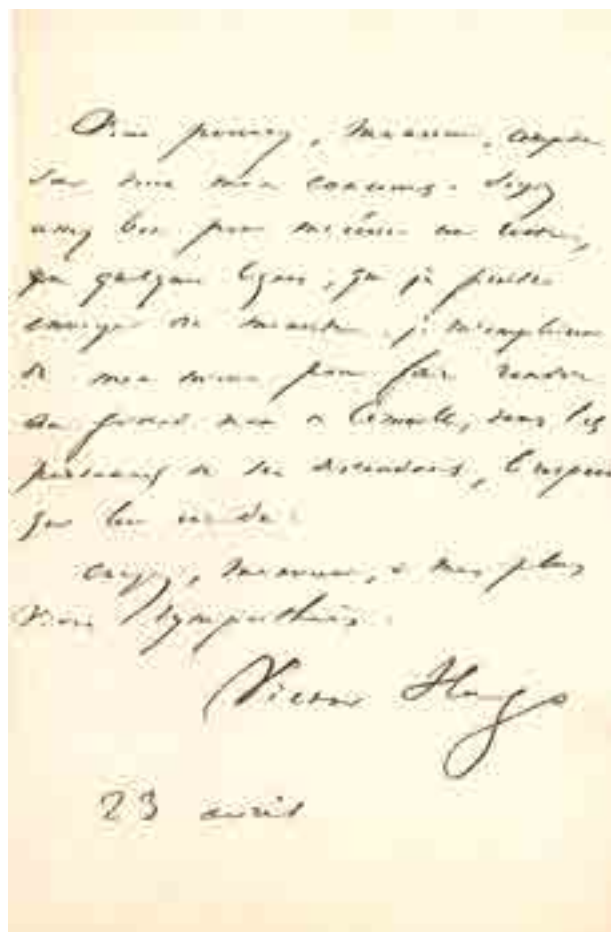 Vous pouvez, monsieur, compter
sur tout mon concours. Soyez
assez bon pour m'écrire une lettre,
en quelques lignes, que je puisse
envoyer au ministre. je m'emploierai
de mon mieux pour faire rendre
au grand nom de Corneille, dans les
personnes de ses descendants, l'
qui lui est dû.
Croyez, monsieur, à mes plus
vives sympathies.
Victor Hugo
23 avril